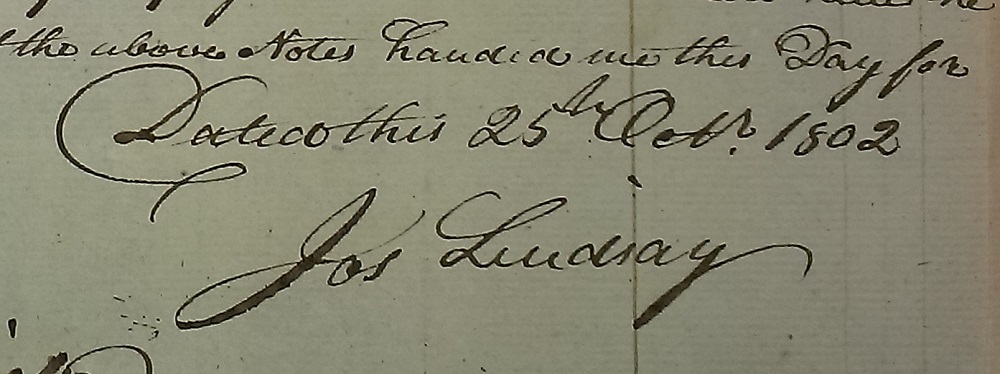 the above Notes handed me this Day for
Dated this 25th Octr. 1802
Jos Lindsay